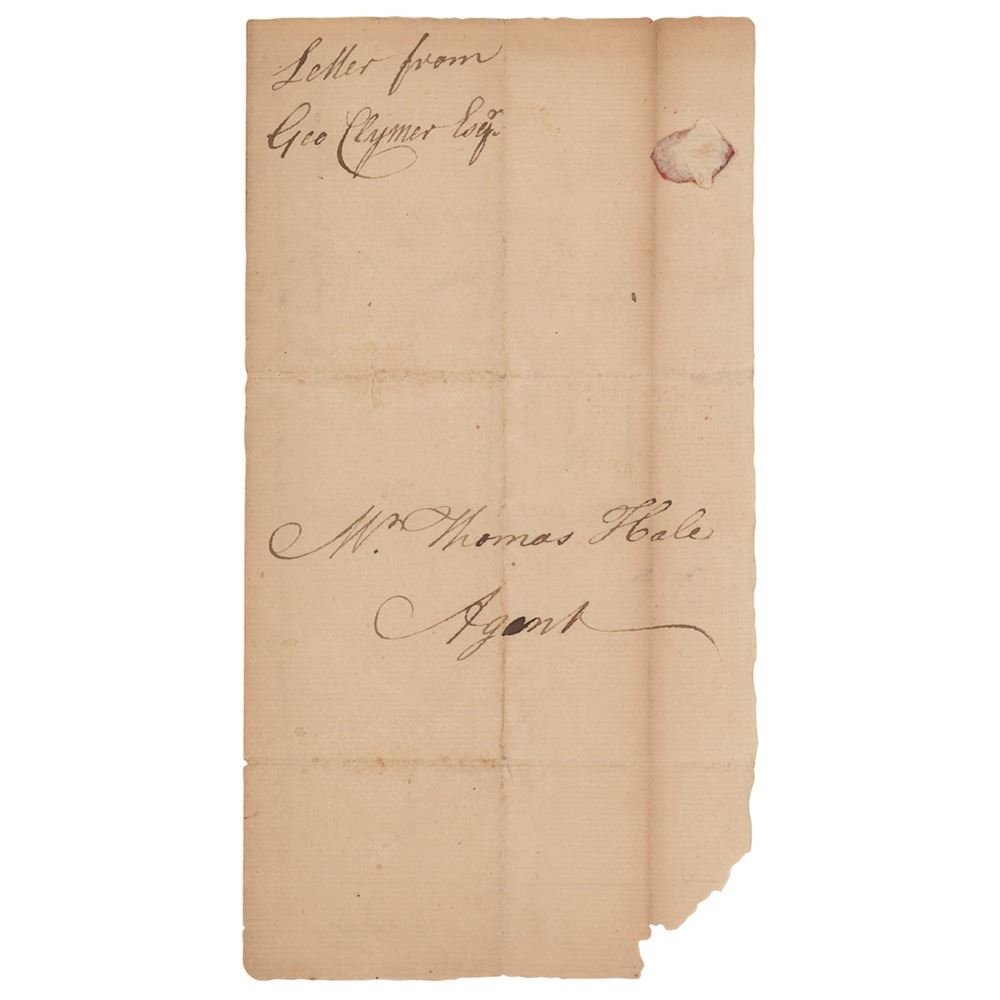 Letter from
Geo Clymer Esqr.
Mr. Thomas Hale
Agent